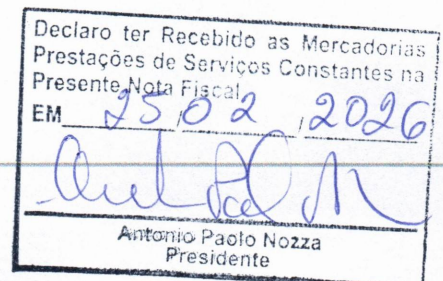 Declaro ter Recebido as Mercadorias
Prestações de Serviços Constantes na
Presente Nota Fiscal
EM 25, 02, 2026
Antonio Paolo Nozza
Presidente